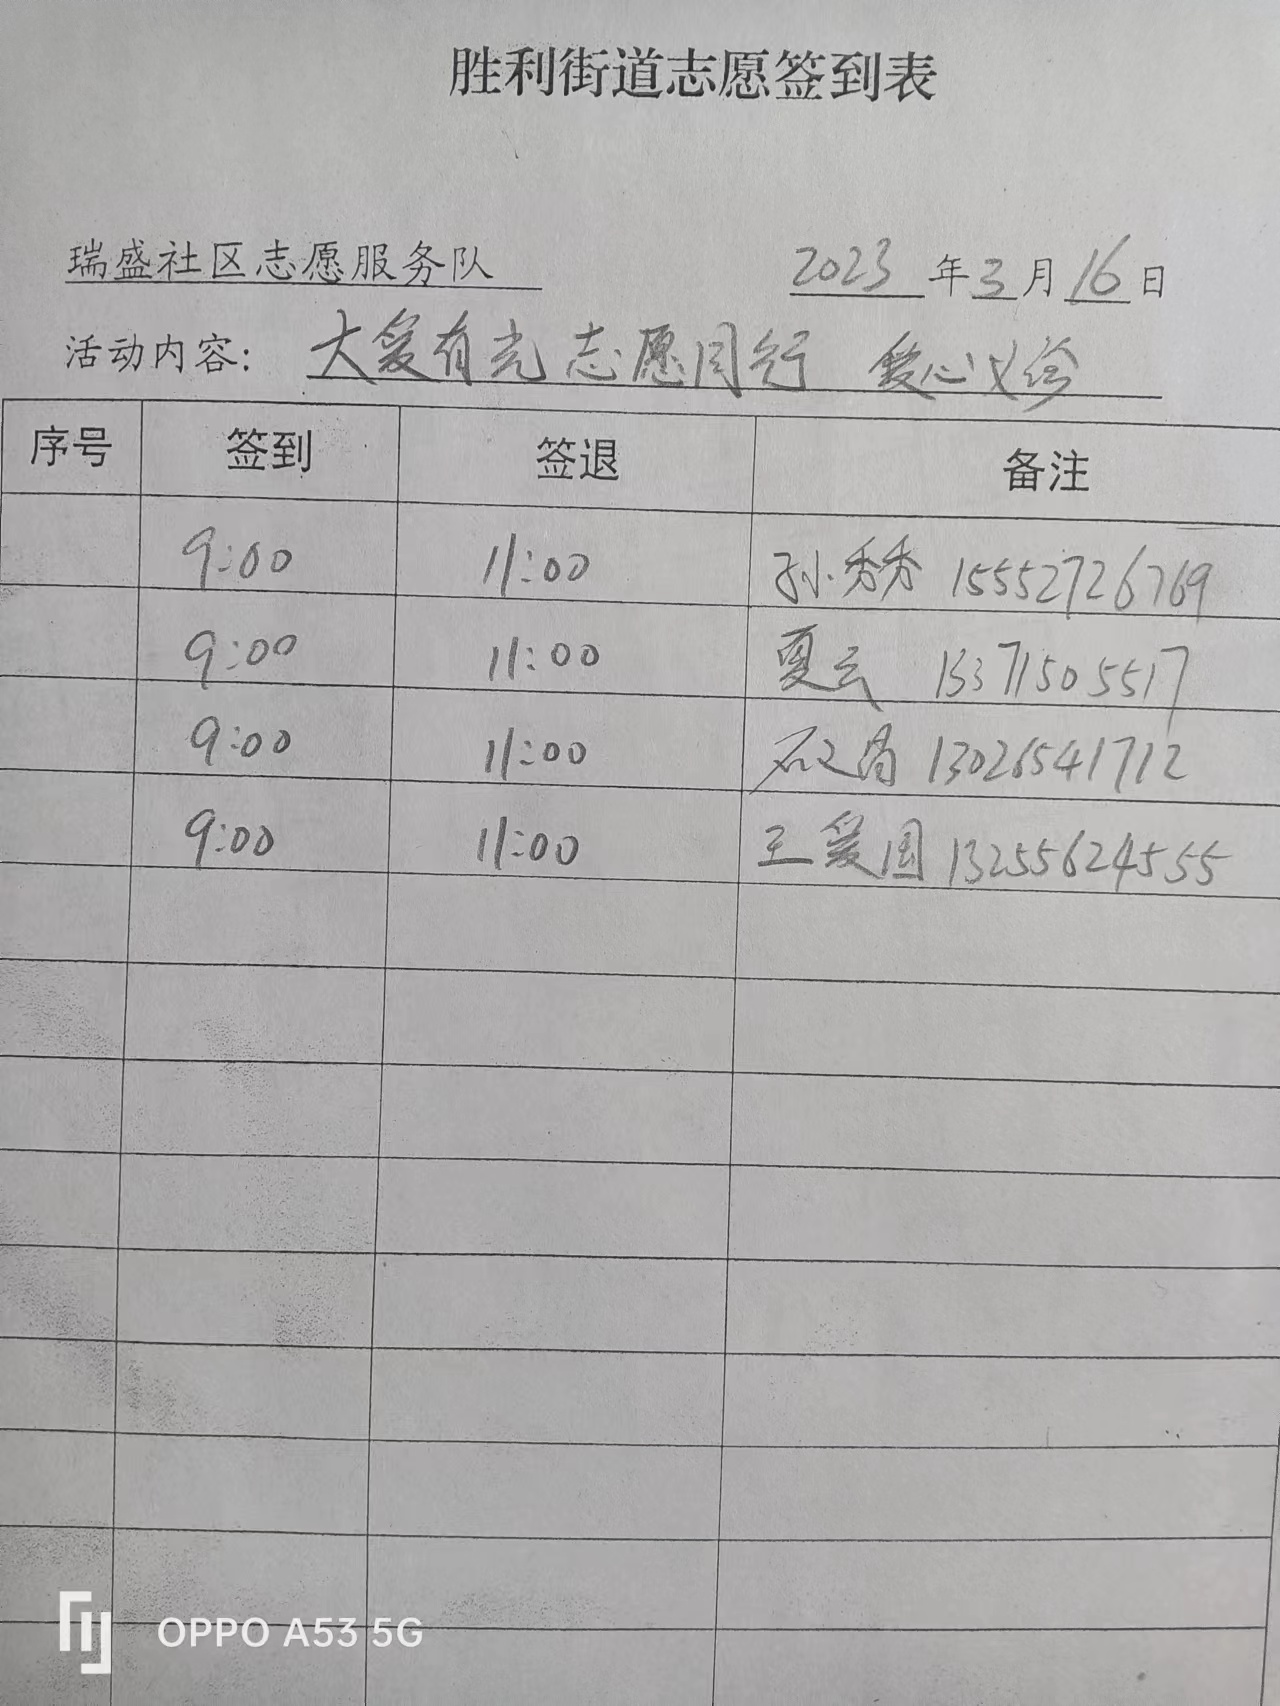 胜利街道志愿签到表
瑞盛社区志愿服务队 2023年3月16日
活动内容: 大爱有光 志愿同行 爱心义诊
序号 签到 签退 备注
9:00 11:00 孙秀秀 15552726769
9:00 11:00 夏云 13371505517
9:00 11:00 13026541712
9:00 11:00 王爱国 13255624555
OPPO A53 5G